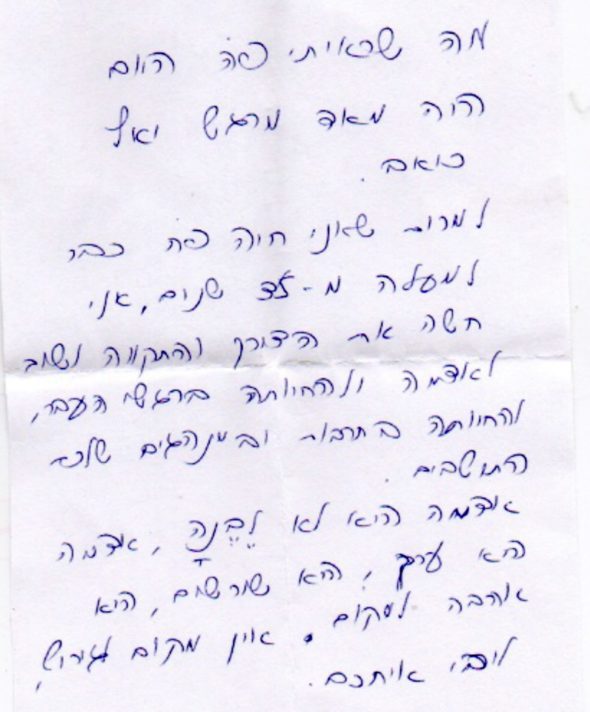 מה שראיתי פה היום
היה מאד מרגש ואף
כואב.
למרות שאני חיה פה כבר
למעלה מ- שנים, אני
חשה את הצורך והתקווה לשוב
לאדמה ולהחיותה ברגשי העבר,
להחיותה בתרבות ובמנהגים של
התושבים.
אדמה היא לא לְבֵנָה, אדמה
היא ערך, היא שורשים, היא
אהבה למקום. אין מקום לגירוש,
ליבי איתכם.